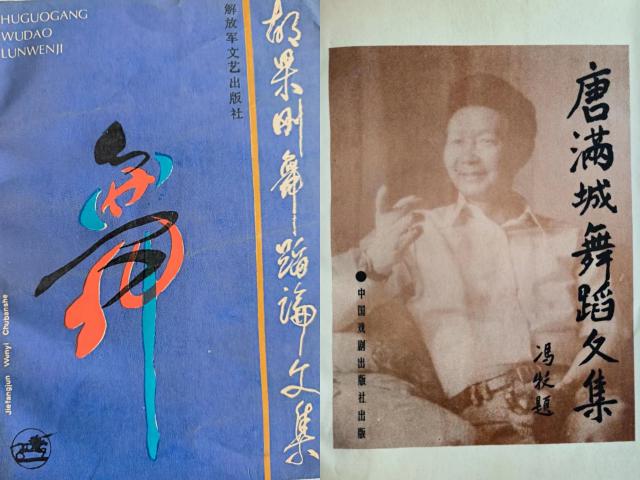 HUGUOGANG
WUDAO
LUNWENJI
解放军文艺出版社
胡果刚舞蹈论文集
舞
Jiefangjun Wenyi Chubanshe
唐满城舞蹈文集
冯牧题
●中国戏剧出版社出版